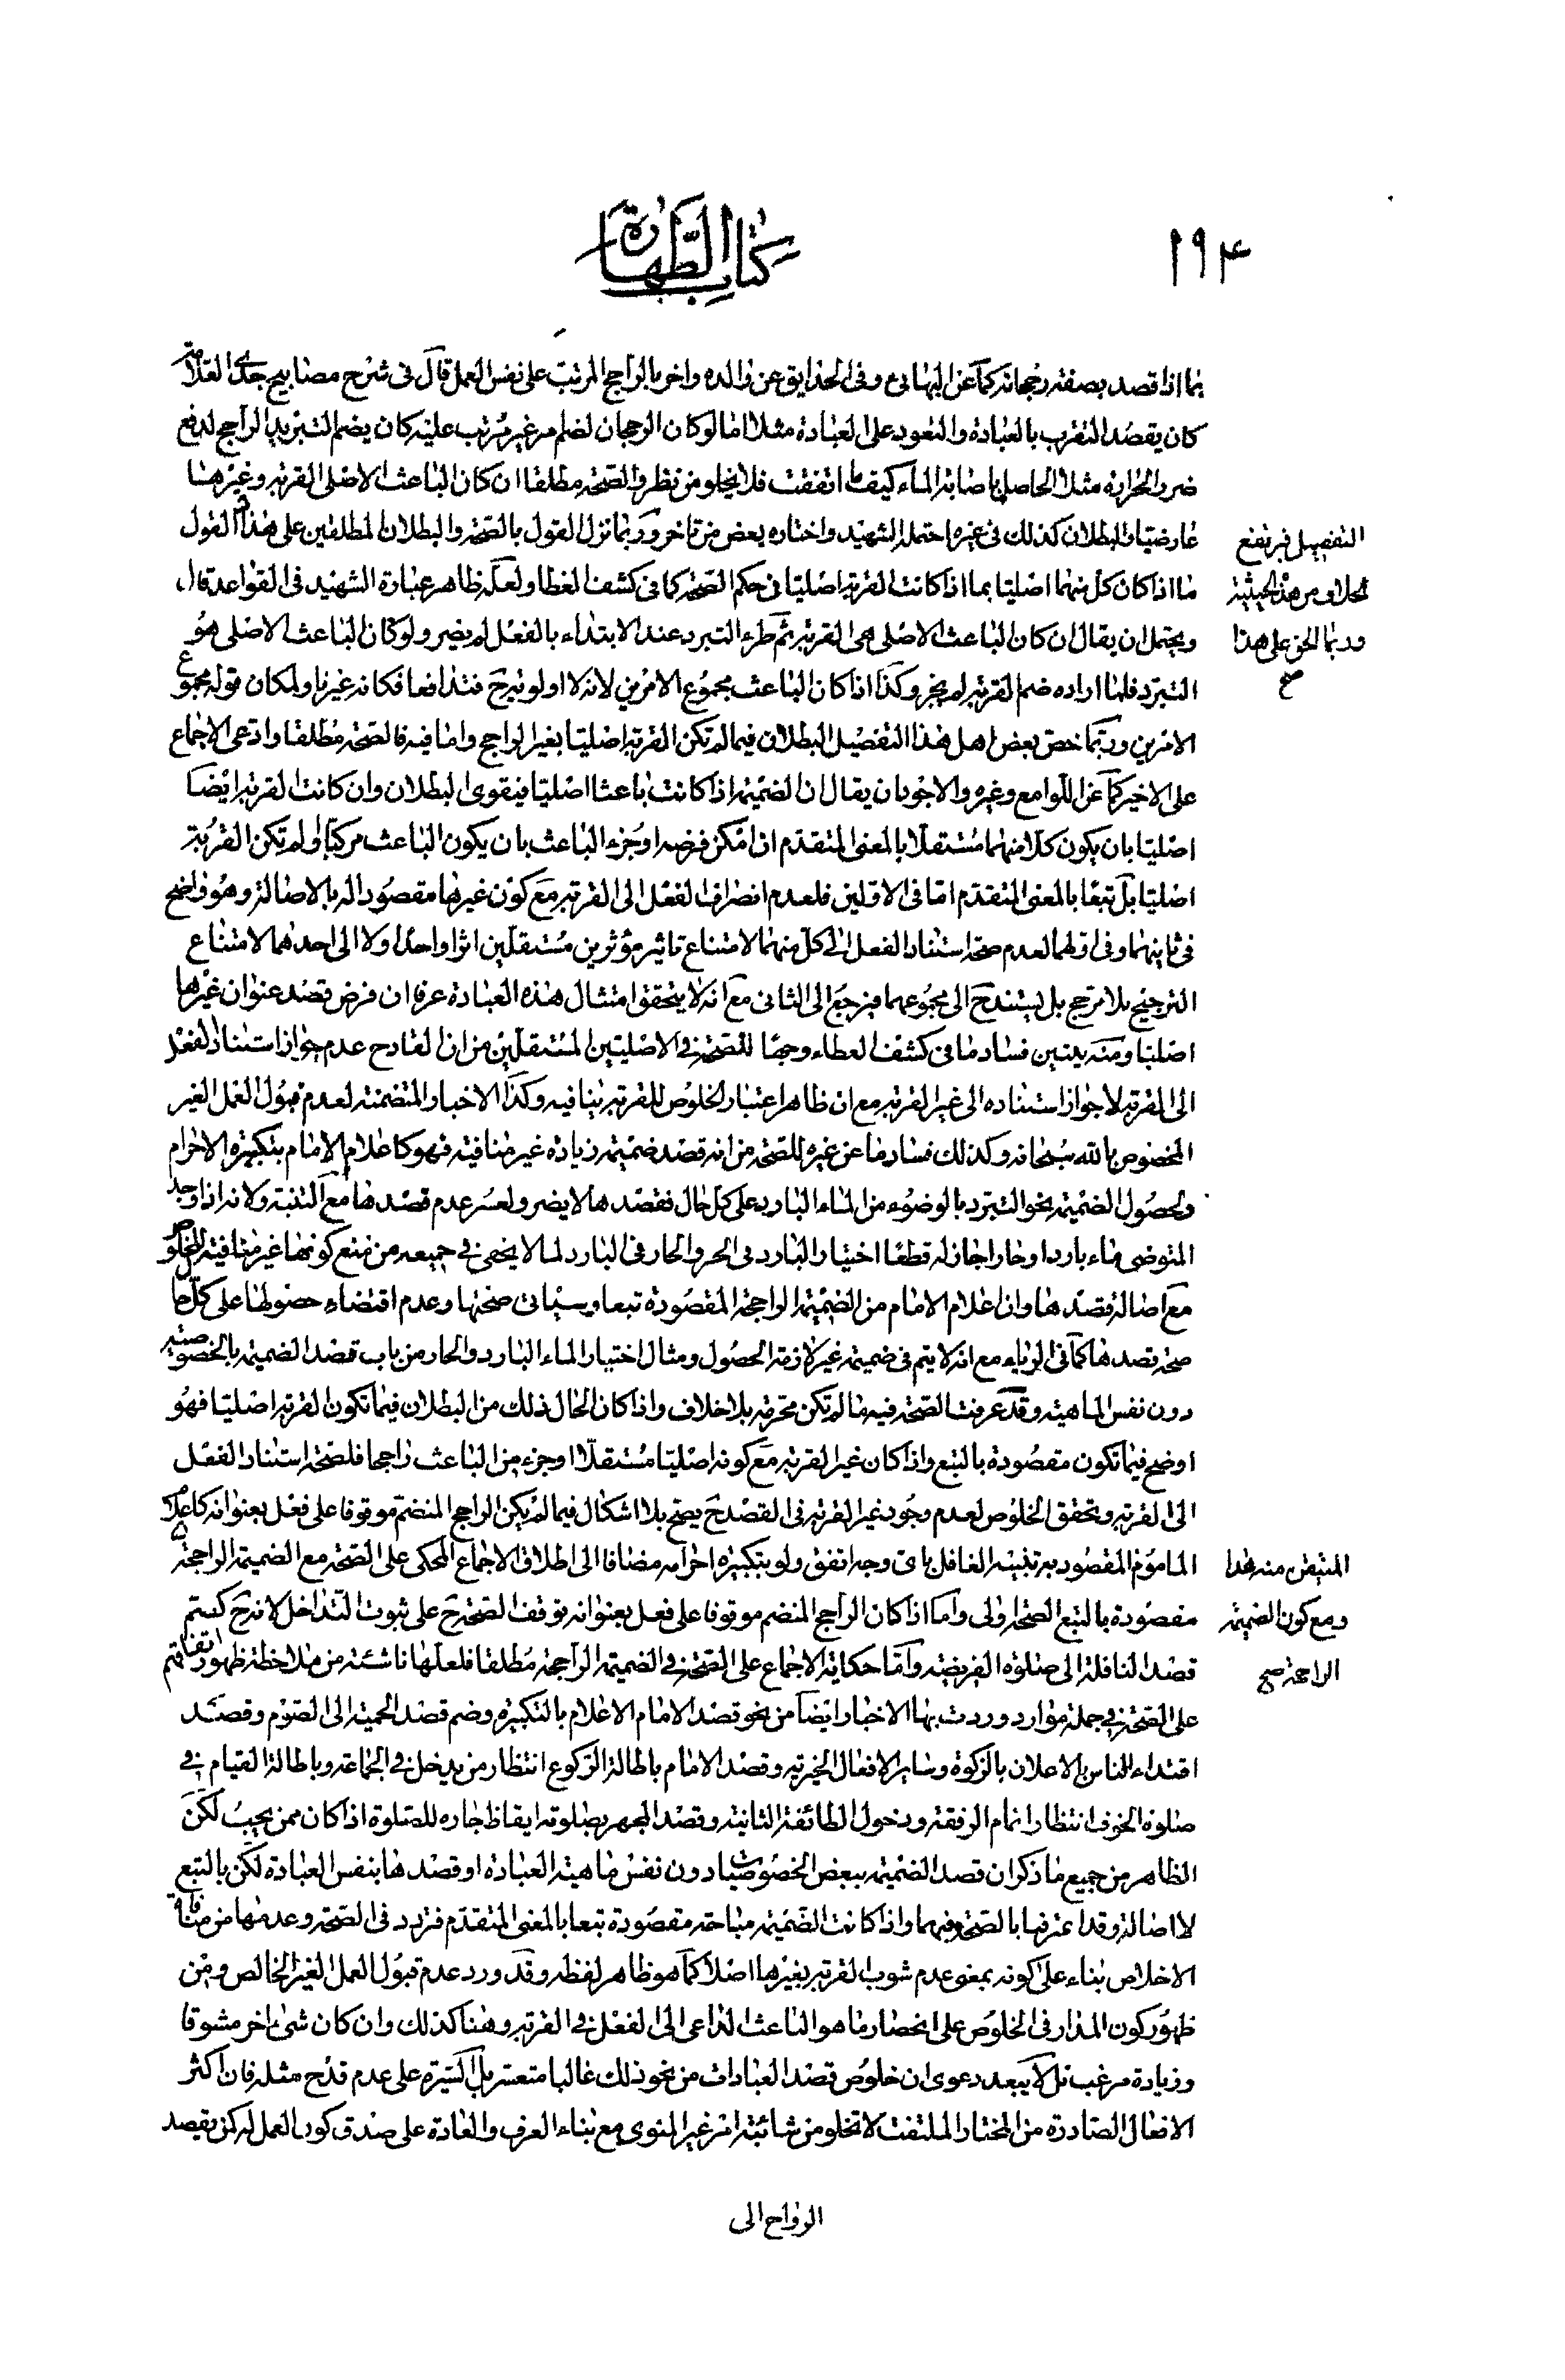 ١٩٤
كتاب الطهارة
بما اذا قصد بصفة رجحانه كما عن البهائي وفي الحدايق عن والده واخر بالراجح المرتب على نفس العمل قال في شرح مصابيح جدى العلامة
كان يقصد التقرب بالعبادة والتعود على العبادة مثلا اما لو كان الرجحان لضم امر غير مرتب عليه كان يضم التبريد الراجح لدفع
ضرر الحرارة مثلا الحاصل باصابة الماء كيف ما اتفقت فلا يخلو من نظر والصحة مطلقا ان كان الباعث الاصلى القربة وغيرها
عارضيا والبطلان كذلك في غيره احتمله الشهيد واختاره بعض من تاخر وربما نزل القول بالصحة والبطلان المطلقين على هذا القول
التفصيل فيرتفع
الخلاف من هذه الحيثية
وربما الحق على هذا
صح
ما اذا كان كل منهما اصليا بما اذا كانت القربة اصليا في حكم الصحة كما في كشف الغطا ولعله ظاهر عبارة الشهيد في القواعد قال
ويحتمل ان يقال ان كان الباعث الاصلى هى القربة ثم طرء التبرد عند الابتداء بالفعل لم يضر ولو كان الباعث الاصلى هو
التبرد فلما اراده ضم القربة لم يجز وكذا اذا كان الباعث مجموع الامرين لانه لا اولوية ح فتدافعا فكانه غير ناو لمكان قوله مجموع
الامرين وربما خص بعض اهل هذا التفصيل البطلان فيما لم تكن القربة اصليا بغير الراجح واما فيه فالصحة مطلقا وادعى الاجماع
على الاخير كما عن اللوامع وغيره والاجود ان يقال ان الضميمة اذا كانت باعثا اصليا فيقوى البطلان وان كانت القربة ايضا
اصليا بان يكون كلا منهما مستقلا بالمعنى المتقدم ان امكن فرضه او جزء الباعث بان يكون الباعث مركبا او لم تكن القربة
اصليا بل تبعا بالمعنى المتقدم اما في الاولين فلعدم انصراف الفعل الى القربة مع كون غيرها مقصودا له بالاصالة وهو واضح
في ثانيهما وفي اولهما لعدم صحة استناد الفعل الى كل منهما لامتناع تاثير مؤثرين مستقلين اثرا واحدا ولا الى احدهما لامتناع
الترجيح بلا مرجح بل يستند ح الى مجموعهما فيرجع الى الثاني مع انه لا يتحقق امتثال هذه العبادة عرفا ان فرض قصد عنوان غيرها
اصليا ومنه يتبين فساد ما في كشف الغطاء وجها للصحة في الاصليين المستقلين من ان القادح عدم جواز استناد الفعل
الى القربة لا جواز استناده الى غير القربة مع ان ظاهر اعتبار الخلوص للقربة ينافيه وكذا الاخبار المتضمنة لعدم قبول العمل الغير
المخصوص بالله سبحانه وكذلك فساد ما عن غيره للصحة من انه قصد ضميمة زيادة غير منافية فهو كاعلام الامام بتكبيرة الاحرام
ولحصول الضميمة نحو التبرد بالوضوء من الماء البارد على كل حال فقصدها لا يضر ولعسر عدم قصدها مع التنبه ولانه اذا وجد
المتوضى ماء باردا وحارا جاز له قطعا اختيار البارد في الحر والحار في البارد لما لا يخفى في جميعه من منع كونها غير منافية للخلوص
مع اصالة قصدها وان اعلام الامام من الضميمة الراجحة المقصودة تبعا وسياتى صحتها وعدم اقتضاء حصولها على كل حال
صحة قصدها كما في الرياء مع انه لا يتم في ضميمة غير لازمة الحصول ومثال اختيار الماء البارد والحار من باب قصد الضميمة بالخصوصية
دون نفس الماهية وقد عرفت الصحة فيه ما لم تكن محرمة بلا خلاف واذا كان الحال ذلك من البطلان فيما تكون القربة اصليا فهو
اوضح فيما تكون مقصودة بالتبع واذا كان غير القربة مع كونه اصليا مستقلا او جزء من الباعث راجحا فلصحة استناد الفعل
الى القربة وتحقق الخلوص لعدم وجود غير القربة في القصد ح يصح بلا اشكال فيما لم يكن الراجح المنضم موقوفا على فعل بعنوانه كاعلام
الماموم المقصود به تنبيه الغافل باى وجه اتفق ولو بتكبيرة احرامه مضافا الى اطلاق الاجماع المحكى على الصحة مع الضميمة الراجحة
المنيقن منه هذا
ومع كون الضميمة
الراجحة صح
مقصودة بالتبع الصحة اولى واما اذا كان الراجح المنضم موقوفا على فعل بعنوانه توقف الصحة ح على ثبوت التداخل لانه ح كمتم
قصد النافلة الى صلوة الفريضة واما حكاية الاجماع على الصحة في الضميمة الراجحة مطلقا فلعلها ناشئة من ملاحظة ظهور اتفاقهم
على الصحة في جملة موارد وردت بها الاخبار ايضا من نحو قصد الامام الاعلام بالتكبيرة وضم قصد الحمية الى الصوم وقصد
اقتداء الناس بالاعلان بالزكوة وساير الافعال الخيرية وقصد الامام باطالة الركوع انتظار من يدخل في الجماعة وباطالة القيام في
صلوة الخوف انتظار اتمام الرفقة ودخول الطائفة الثانية وقصد الجهر بصلوته ايقاظ جاره للصلوة اذا كان ممن يجب لكن
الظاهر من جميع ما ذكر ان قصد الضميمة ببعض الخصوصيات دون نفس ماهية العبادة او قصدها بنفس العبادة لكن بالتبع
لا اصالة وقد اعترفنا بالصحة فيهما واذا كانت الضميمة مباحة مقصودة تبعا بالمعنى المتقدم فتردد في الصحة وعدمها من منافاة
الاخلاص بناء على كونه بمعنى عدم شوب القربة بغيرها اصلا كما هو ظاهر لفظه وقد ورد عدم قبول العمل الغير الخالص ومن
ظهور كون المدار في الخلوص على انحصار ما هو الباعث الداعى الى الفعل في القربة وهنا كذلك وان كان شئ اخر مشوقا
وزيادة مرغب بل لا يبعد دعوى ان خلوص قصد العبادات من نحو ذلك غالبا متعسر بل السيرة على عدم قدح مثله فان اكثر
الافعال الصادرة من المختار الملتفت لا تخلو من شائبة امر غير المنوى مع بناء العرف والعادة على صدق كون العمل له كمن يقصد
الرواح الى